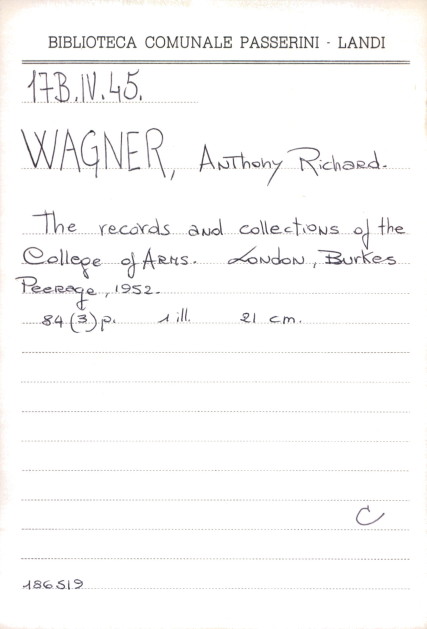 BIBLIOTECA COMUNALE PASSERINI - LANDI
17B.IV.45.
WAGNER, Anthony Richard.
The records and collections of the
College of Arms. London, Burkes
Peerage, 1952.
84(3)p. 1 ill. 21 cm.
C
186519